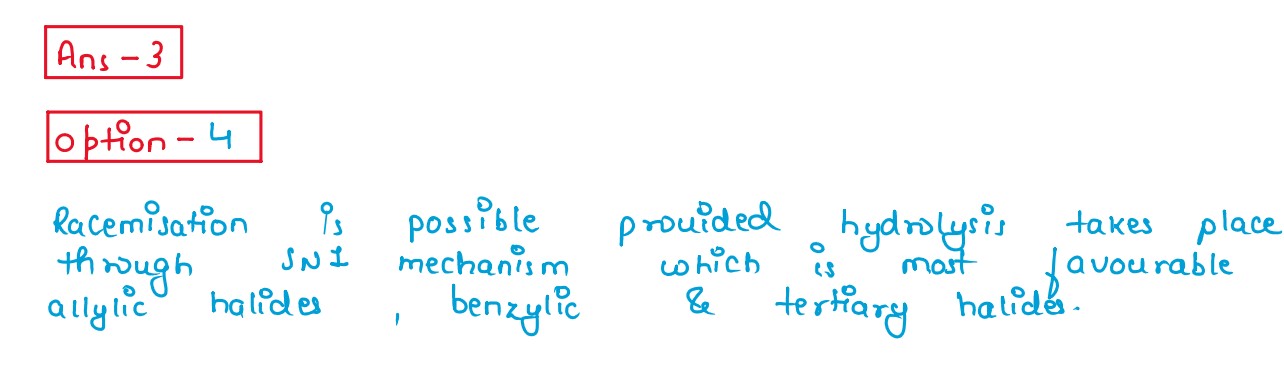 Ans - 3
option - 4
Racemisation is possible provided hydrolysis takes place
through SN1 mechanism which is most favourable
allylic halides , benzylic & tertiary halides.